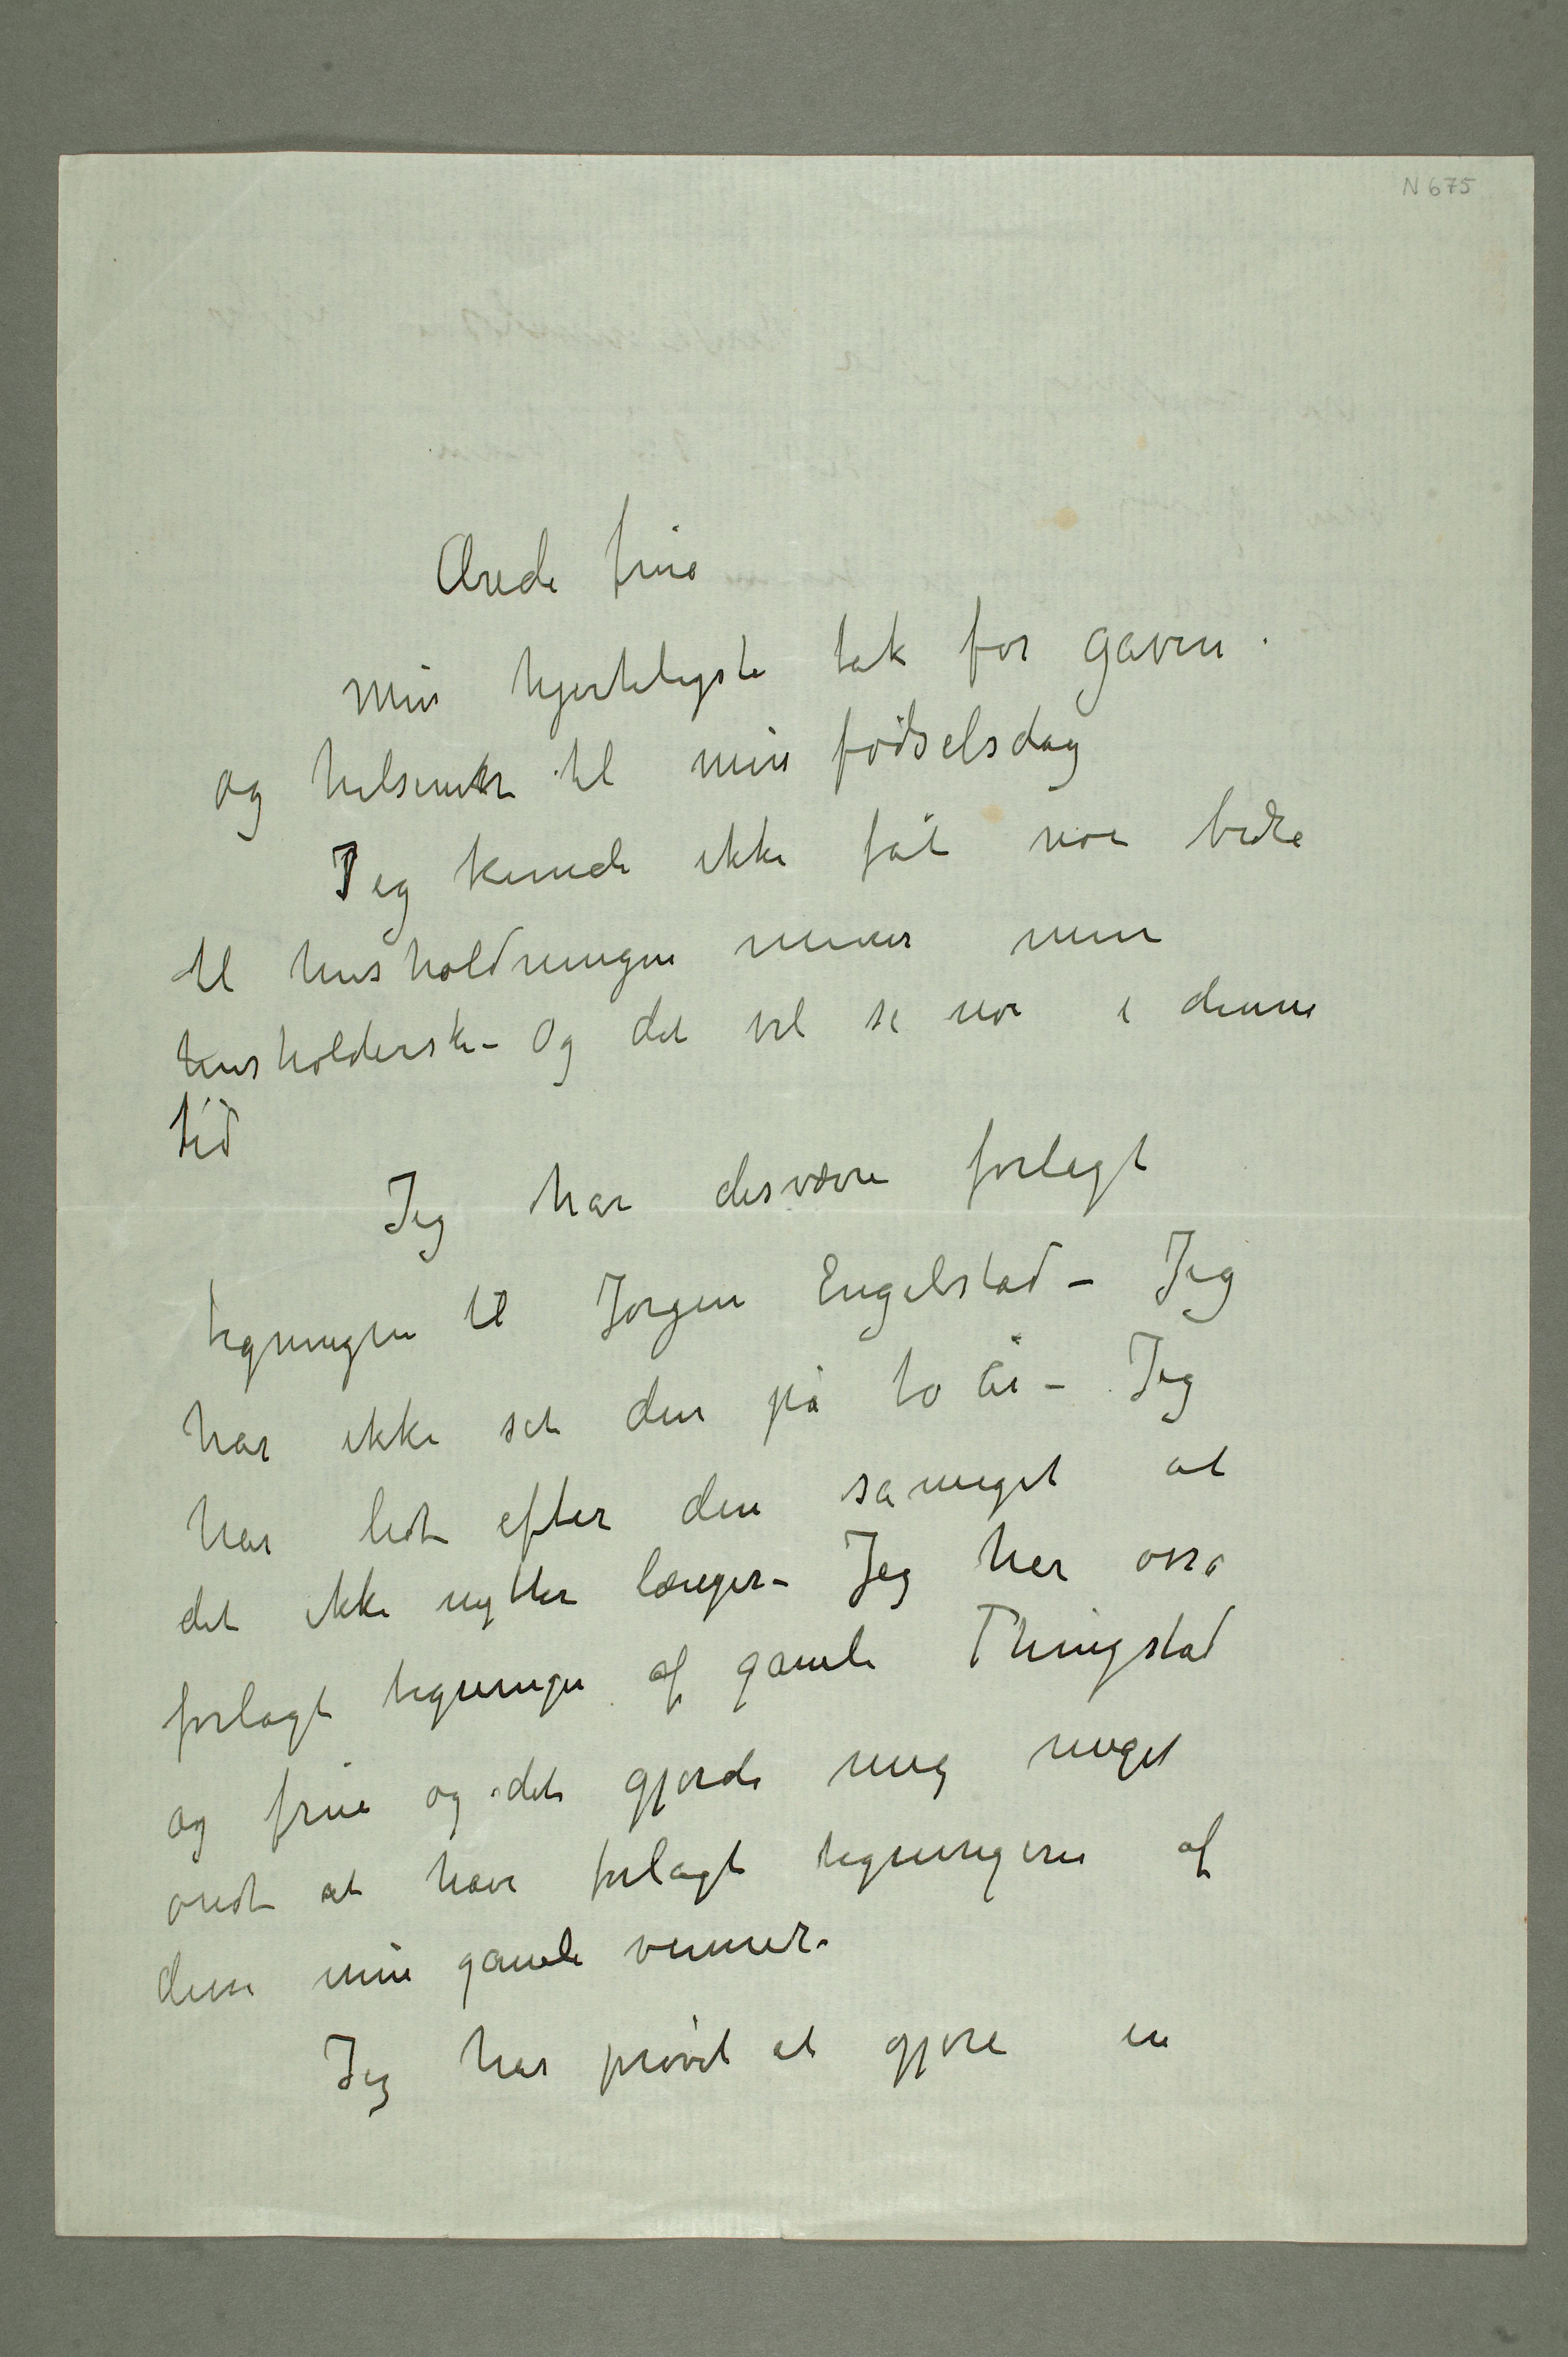 N 675
Ærede frue
Min hjerteligste tak for gaven
og hilsenen til min fødselsdag
Jeg kunde ikke fåt noe bedre
til husholdningen mener min
husholderske – Og det vil si noe i denne
tid
Jeg har desværre forlagt
tegningen til Jørgen Engelstad – Jeg
har ikke set den på to år – Jeg
har ledt efter den så meget at
det ikke nytter længer – Jeg har osså
forlagt tegningen af gamle Thingstad
og frue og det gjorde mig meget
ondt at have forlagt tegningerne af
disse mine gamle venner –
Jeg har prøvet at gjøre en